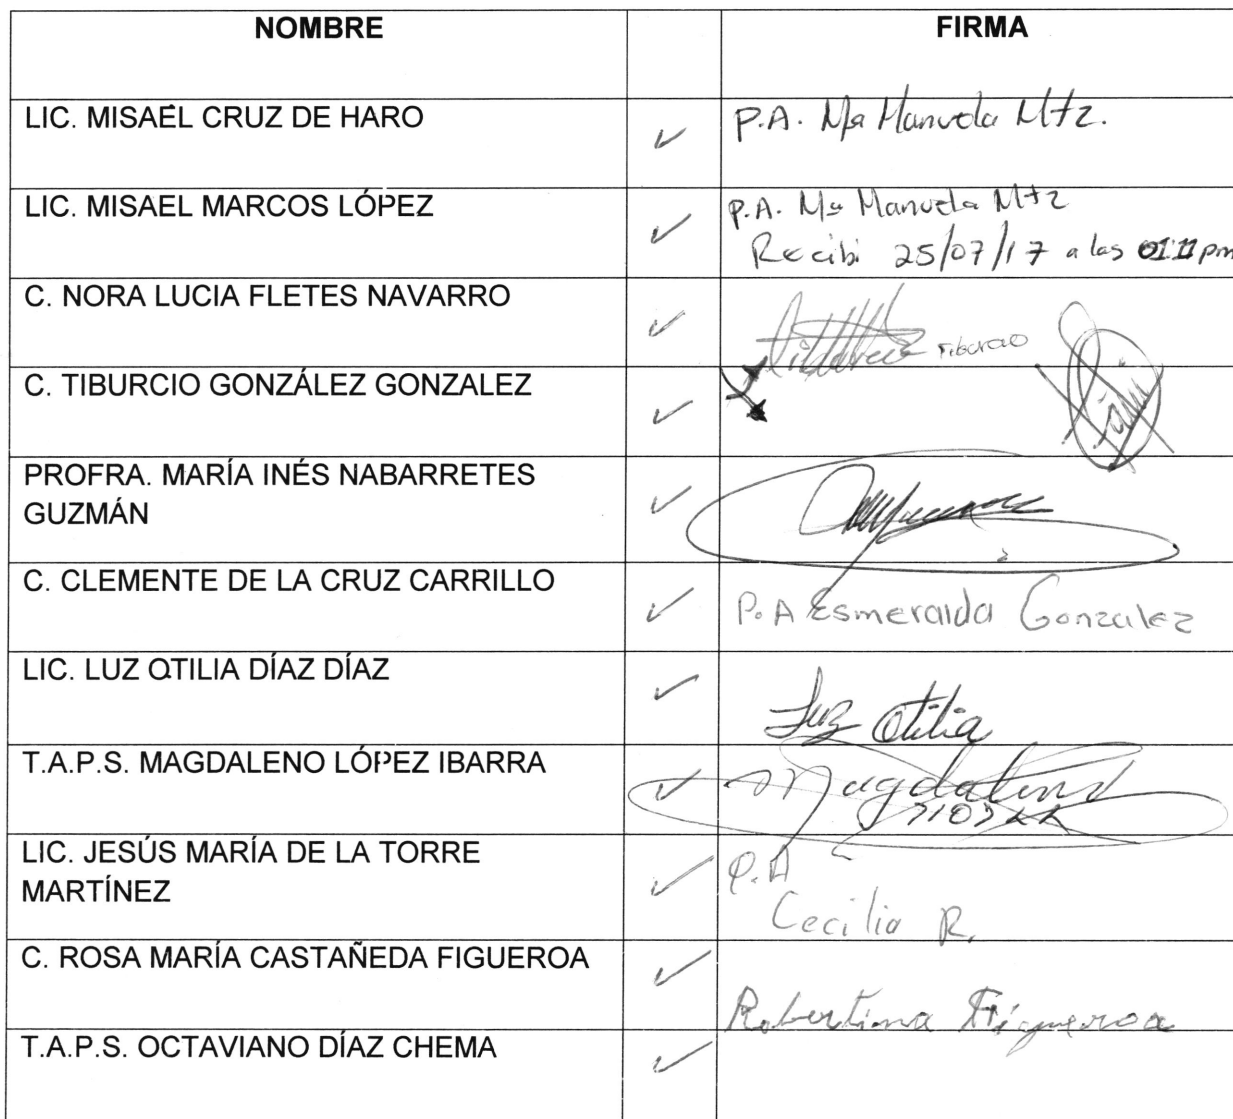 NOMBRE FIRMA
LIC. MISAEL CRUZ DE HARO ✓ P.A. Ma Manuela Mtz.
LIC. MISAEL MARCOS LÓPEZ ✓ P.A. Ma Manuela Mtz
Recibi 25/07/17 a las pm
C. NORA LUCIA FLETES NAVARRO ✓
C. TIBURCIO GONZÁLEZ GONZALEZ ✓
PROFRA. MARÍA INÉS NABARRETES ✓
GUZMÁN
C. CLEMENTE DE LA CRUZ CARRILLO ✓ P.A Esmeralda Gonzalez
LIC. LUZ OTILIA DÍAZ DÍAZ ✓ Luz Otilia
T.A.P.S. MAGDALENO LÓPEZ IBARRA ✓ Magdaleno
LIC. JESÚS MARÍA DE LA TORRE ✓ P.A
MARTÍNEZ Cecilia R.
C. ROSA MARÍA CASTAÑEDA FIGUEROA ✓ Robertina Figueroa
T.A.P.S. OCTAVIANO DÍAZ CHEMA ✓